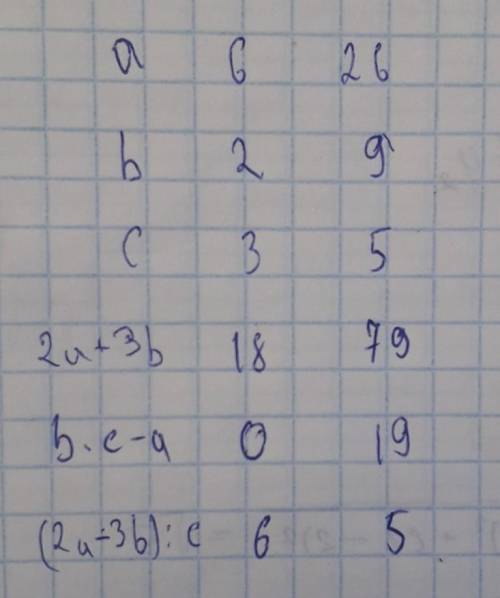 a 6 26
b 2 9
c 3 5
2a+3b 18 79
b·c-a 0 19
(2a-3b):c 6 5